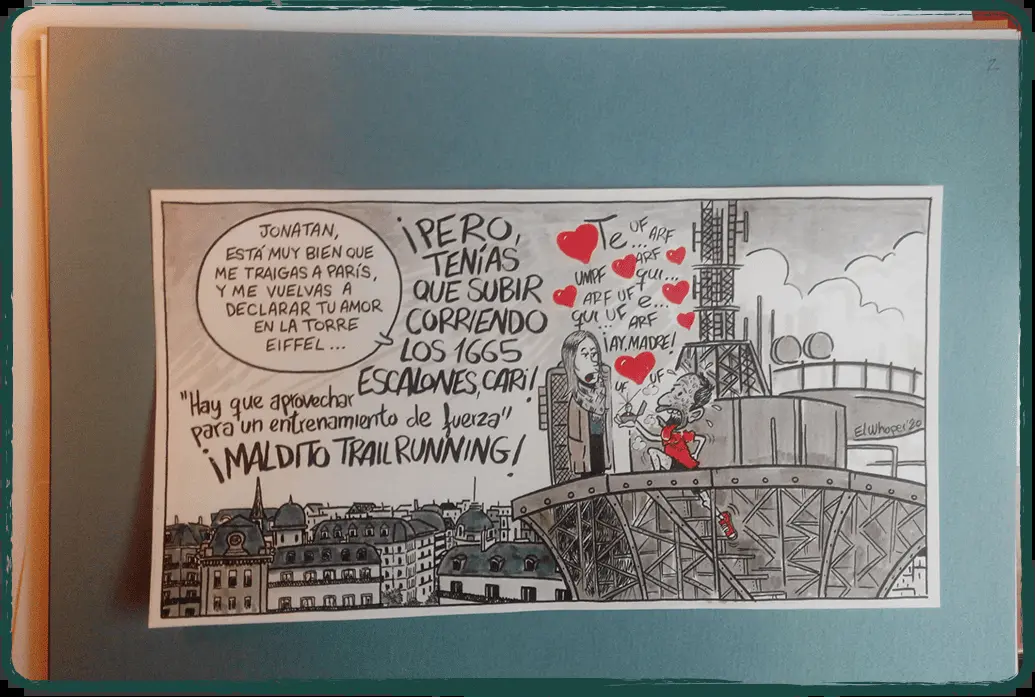 2
JONATAN,
ESTÁ MUY BIEN QUE
ME TRAIGAS A PARÍS,
Y ME VUELVAS A
DECLARAR TU AMOR
EN LA TORRE
EIFFEL...
¡PERO,
TENÍAS
QUE SUBIR
CORRIENDO
LOS 1665
ESCALONES, CARI!
"Hay que aprovechar
para un entrenamiento de fuerza"
¡MALDITO TRAIL RUNNING!
Te... UF ARF
UMPF ARF qui...
ARF UF e...
qui... UF ARF
¡AY, MADRE!
UF UF
ElWhoper'20